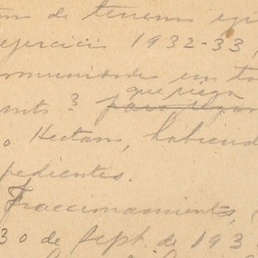 de terrenos
ejercicio 1932-33
comunidades en
que riega
? para regar
o Hectars, habiend
pedientes.
Fraccionamientos,
30 de Sept. de 193